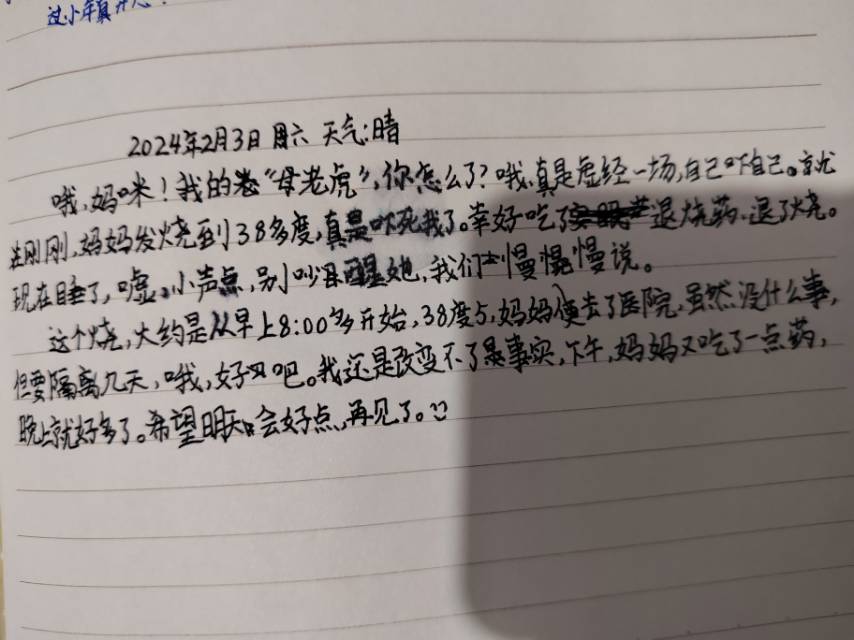 过小年真开心!
2024年2月3日 周六 天气:晴
哦,妈咪!我的“母老虎”,你怎么了?哦,真是虚经一场,自己吓自己。就
在刚刚,妈妈发烧到38多度,真是吓死我了。幸好吃了退烧药,退了烧。
现在睡了,嘘。小声点,别吵醒她,我们慢慢慢说。
这个烧,大约是从早上8:00多开始,38度5,妈妈便去了医院,虽然没什么事,
但要隔离几天,哦,好吧。我还是改变不了事实,下午,妈妈又吃了一点药,
晚上就好多了。希望明天会好点,再见了。